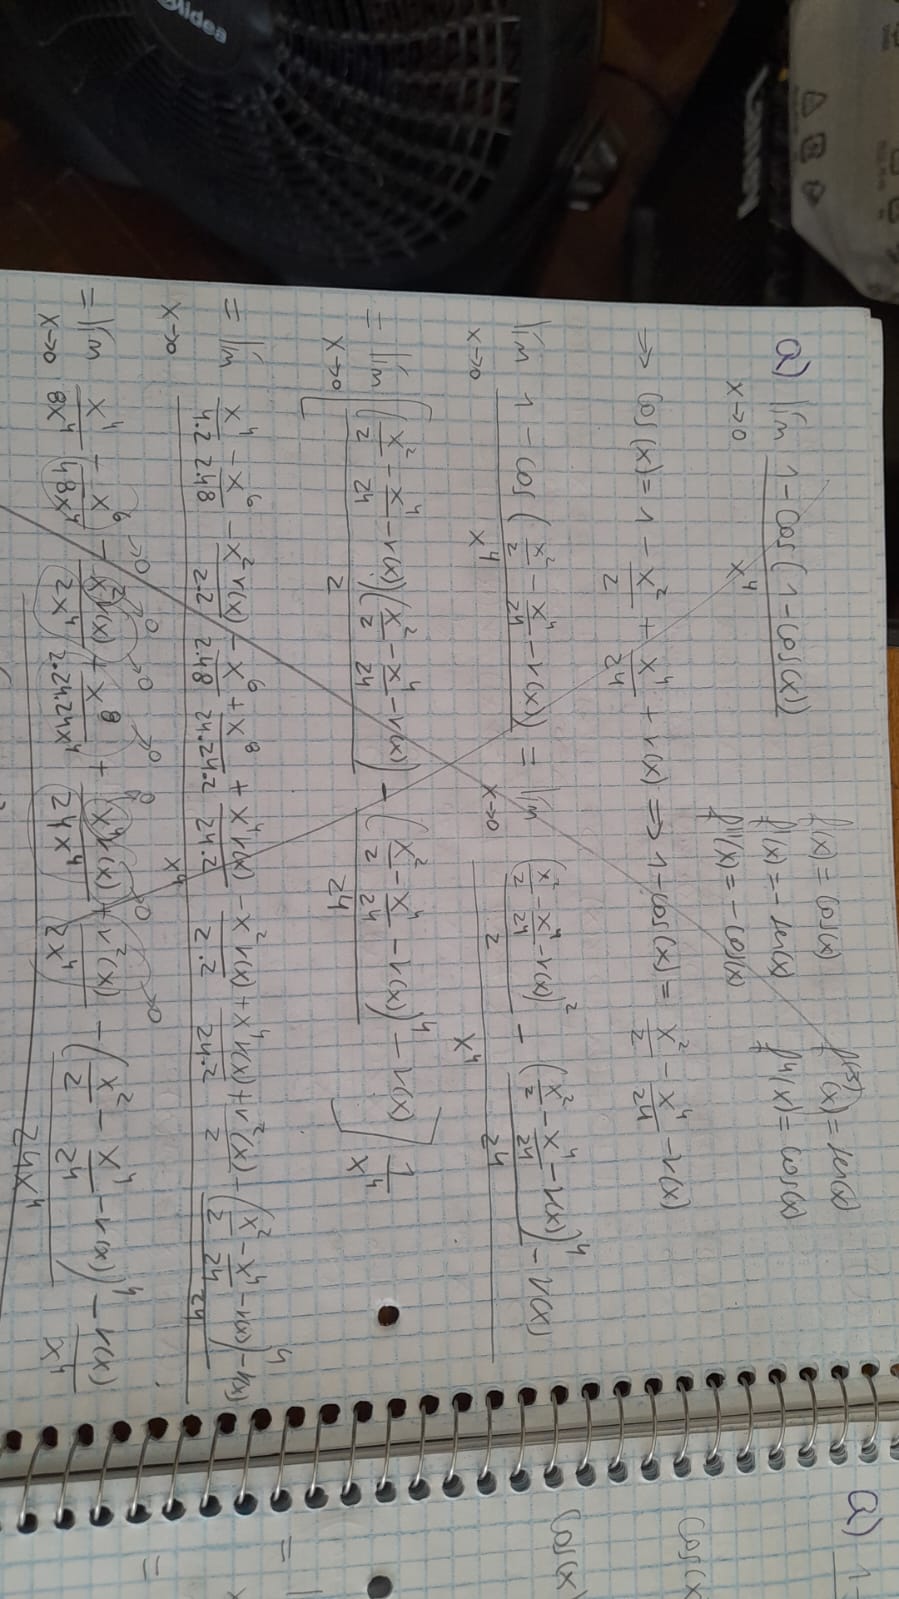 Midea
Canon
a) lím 1-cos(1-cos(x)) / x^4
x→0
f(x) = cos(x)
f'(x) = -sen(x)
f''(x) = -cos(x)
f^(3)(x) = sen(x)
f^4(x) = cos(x)
⇒ cos(x) = 1 - x^2/2 + x^4/24 + r(x) ⇒ 1-cos(x) = x^2/2 - x^4/24 - r(x)
lím x→0 (1 - cos(x^2/2 - x^4/24 - r(x))) / x^4 = lím x→0 ((x^2/2 - x^4/24 - r(x))^2 / 2 - (x^2/2 - x^4/24 - r(x))^4 / 24 - r(x)) / x^4
= lím x→0 [ (x^2/2 - x^4/24 - r(x))(x^2/2 - x^4/24 - r(x)) / 2 - (x^2/2 - x^4/24 - r(x))^4 / 24 - r(x) ] 1/x^4
= lím x→0 (x^4/4.2 - x^6/2.48 - x^2 r(x)/2.2 - x^6/2.48 + x^8/24.24.2 + x^4 r(x)/24.2 - x^2 r(x)/2.2 + x^4 r(x)/24.2 + r^2(x)/2 - (x^2/2 - x^4/24 - r(x))^4 / 24 - r(x)) / x^4
= lím x→0 x^4/8x^4 - x^6/48x^4 - x^2 r(x)/2x^4 + x^8/2.24.24x^4 + x^4 r(x)/24x^4 + r^2(x)/2x^4 - (x^2/2 - x^4/24 - r(x))^4 / 24x^4 - r(x)/x^4
a) 1-
cos(x
cos(x)
=
=